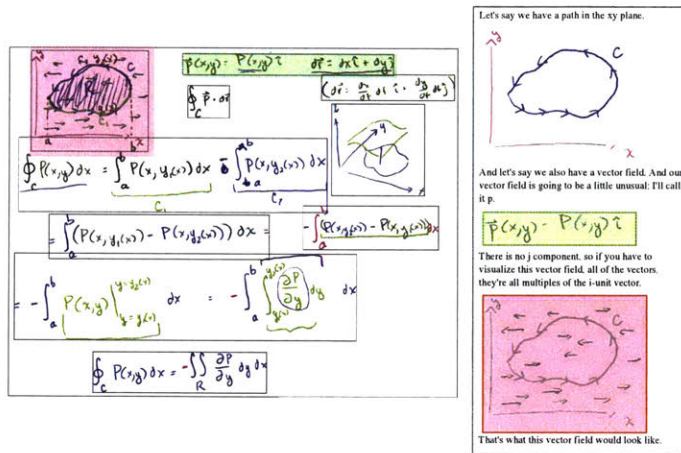 y
C₂ y₂(x) C
R
C₁
a b x
P⃗(x,y) = P(x,y) î dr⃗ = dx î + dy ĵ
∮_C P⃗ · dr⃗
y
∮_C P(x,y) dx = ∫_a^b P(x, y₁(x)) dx
C₁
= ∫_a^b (P(x, y₁(x)) - P(x, y₂(x))) dx =
- ∫_a^b (P(x, y₂(x)) - P(x, y₁(x))) dx
= - ∫_a^b P(x,y) |_{y=y₁(x)}^{y=y₂(x)} dx = - ∫_a^b ∫_{y₁(x)}^{y₂(x)} ∂P/∂y dy dx
∮_C P(x,y) dx = - ∬_R ∂P/∂y dy dx
Let's say we have a path in the xy plane.
y
C
x
And let's say we also have a vector field. And our
vector field is going to be a little unusual; I'll call
it p.
P⃗(x,y) - P(x,y) î
There is no j component, so if you have to
visualize this vector field, all of the vectors,
they're all multiples of the i-unit vector.
y
C
x
That's what this vector field would look like.